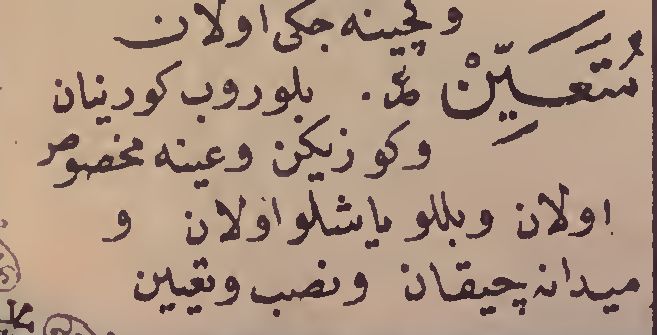 وکچینه جکی اولان
مُتَعَيِّنْ بلوروب کورنیان
وکوزیکن وعینه مخصوص
اولان وبللو باشلو اولان و
میدانه چیقان ونصب وتعیین